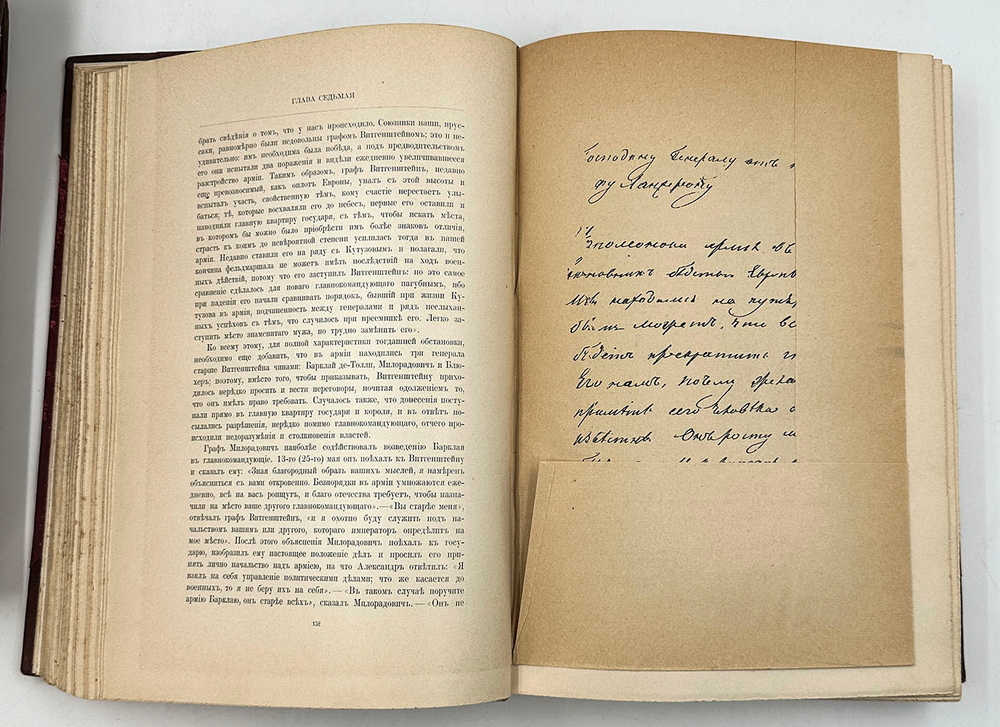 ГЛАВА СЕДЬМАЯ
брать свѣдѣнія о томъ, что у насъ происходило. Союзники наши, прус-
саки, равномѣрно были недовольны графомъ Витгенштейномъ; это и не-
удивительно: имъ необходима была побѣда, а подъ предводительствомъ
его они испытали два пораженія и видѣли ежедневно увеличивавшееся
разстройство арміи. Такимъ образомъ, графъ Витгенштейнъ, недавно
еще превозносимый, какъ оплотъ Европы, упалъ съ этой высоты и
испыталъ участь, свойственную тѣмъ, кому счастіе перестаетъ улы-
баться; тѣ, которые восхваляли его до небесъ, первые его оставили и
наводнили главную квартиру государя, съ тѣмъ, чтобы искать мѣста,
въ которомъ бы можно было пріобрѣсти имъ болѣе знаковъ отличія,
страсть къ коимъ до невѣроятной степени усилилась тогда въ нашей
арміи. Недавно ставили его на ряду съ Кутузовымъ и полагали, что
кончина фельдмаршала не можетъ имѣть послѣдствій на ходъ воен-
ныхъ дѣйствій, потому что его заступилъ Витгенштейнъ; но это самое
сравненіе сдѣлалось для новаго главнокомандующаго пагубнымъ, ибо
при паденіи его начали сравнивать порядокъ, бывшій при жизни Ку-
тузова въ арміи, подчиненность между генералами и рядъ неслыхан-
ныхъ успѣховъ съ тѣмъ, что случилось при преемникѣ его. Легко за-
ступить мѣсто знаменитаго мужа, но трудно замѣнить его».
Ко всему этому, для полной характеристики тогдашней обстановки,
необходимо еще добавить, что въ арміи находились три генерала
старше Витгенштейна чинами: Барклай де-Толли, Милорадовичъ и Блю-
херъ; поэтому, вмѣсто того, чтобы приказывать, Витгенштейну прихо-
дилось нерѣдко просить и вести переговоры, почитая одолженіемъ то,
что онъ имѣлъ право требовать. Случалось также, что донесенія посту-
пали прямо въ главную квартиру государя и короля, и въ отвѣтъ по-
сылались разрѣшенія, нерѣдко помимо главнокомандующаго, отчего про-
исходили недоразумѣнія и столкновенія властей.
Графъ Милорадовичъ наиболѣе содѣйствовалъ возведенію Барклая
въ главнокомандующіе. 13-го (25-го) мая онъ поѣхалъ къ Витгенштейну
и сказалъ ему: «Зная благородный образъ вашихъ мыслей, я намѣренъ
объясниться съ вами откровенно. Безпорядки въ арміи умножаются еже-
дневно, всѣ на васъ ропщутъ, и благо отечества требуетъ, чтобы назна-
чили на мѣсто ваше другого главнокомандующаго».—«Вы старѣе меня»,
отвѣчалъ графъ Витгенштейнъ, «и я охотно буду служить подъ на-
чальствомъ вашимъ или другого, котораго императоръ опредѣлитъ на
мое мѣсто». Послѣ этого объясненія Милорадовичъ поѣхалъ къ госу-
дарю, изобразилъ ему настоящее положеніе дѣлъ и просилъ его при-
нять лично начальство надъ арміею, на что Александръ отвѣтилъ: «Я
взялъ на себя управленіе политическими дѣлами; что же касается до
военныхъ, то я не беру ихъ на себя».—«Въ такомъ случаѣ поручите
армію Барклаю, онъ старѣе всѣхъ», сказалъ Милорадовичъ.—«Онъ не
152
Господину Генералу отъ
фу Ланжерону
на путь,
прекратить